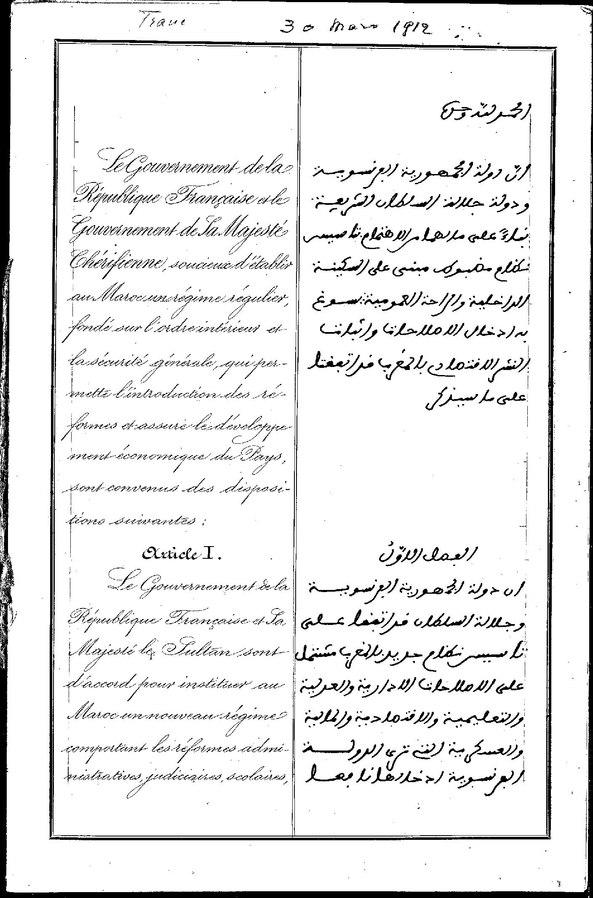 30 Mars 1912
Le Gouvernement de la
République Française et le
Gouvernement de Sa Majesté
Chérifienne, soucieux d'établir
au Maroc un régime régulier,
fondé sur l'ordre intérieur et
la sécurité générale, qui per-
mette l'introduction des ré-
formes et assure le développe-
ment économique du Pays,
sont convenus des disposi-
tions suivantes :
Article I.
Le Gouvernement de la
République Française et Sa
Majesté le Sultan sont
d'accord pour instituer au
Maroc un nouveau régime
comportant les réformes admi-
nistratives, judiciaires, scolaires,
الحمد لله وحده
ان دولة الجمهورية الفرنسوية
ودولة جلالة السلطان الشريفة
بناء على ما لهما من الاهتمام بتاسيس
نظام مضبوط مبنى على السكينة
الداخلية والراحة العمومية يسوغ
به ادخال الاصلاحات واثبات
النشر الاقتصادى بالمغرب قد اتفقتا
على ما سيذكر
الفصل الاول
ان دولة الجمهورية الفرنسوية
وجلالة السلطان قد اتفقا على
تاسيس نظام جديد بالمغرب مشتمل
على الاصلاحات الادارية والعدلية
والتعليمية والاقتصادية والمالية
والعسكرية التى ترى الدولة
الفرنسوية ادخالها نافعا